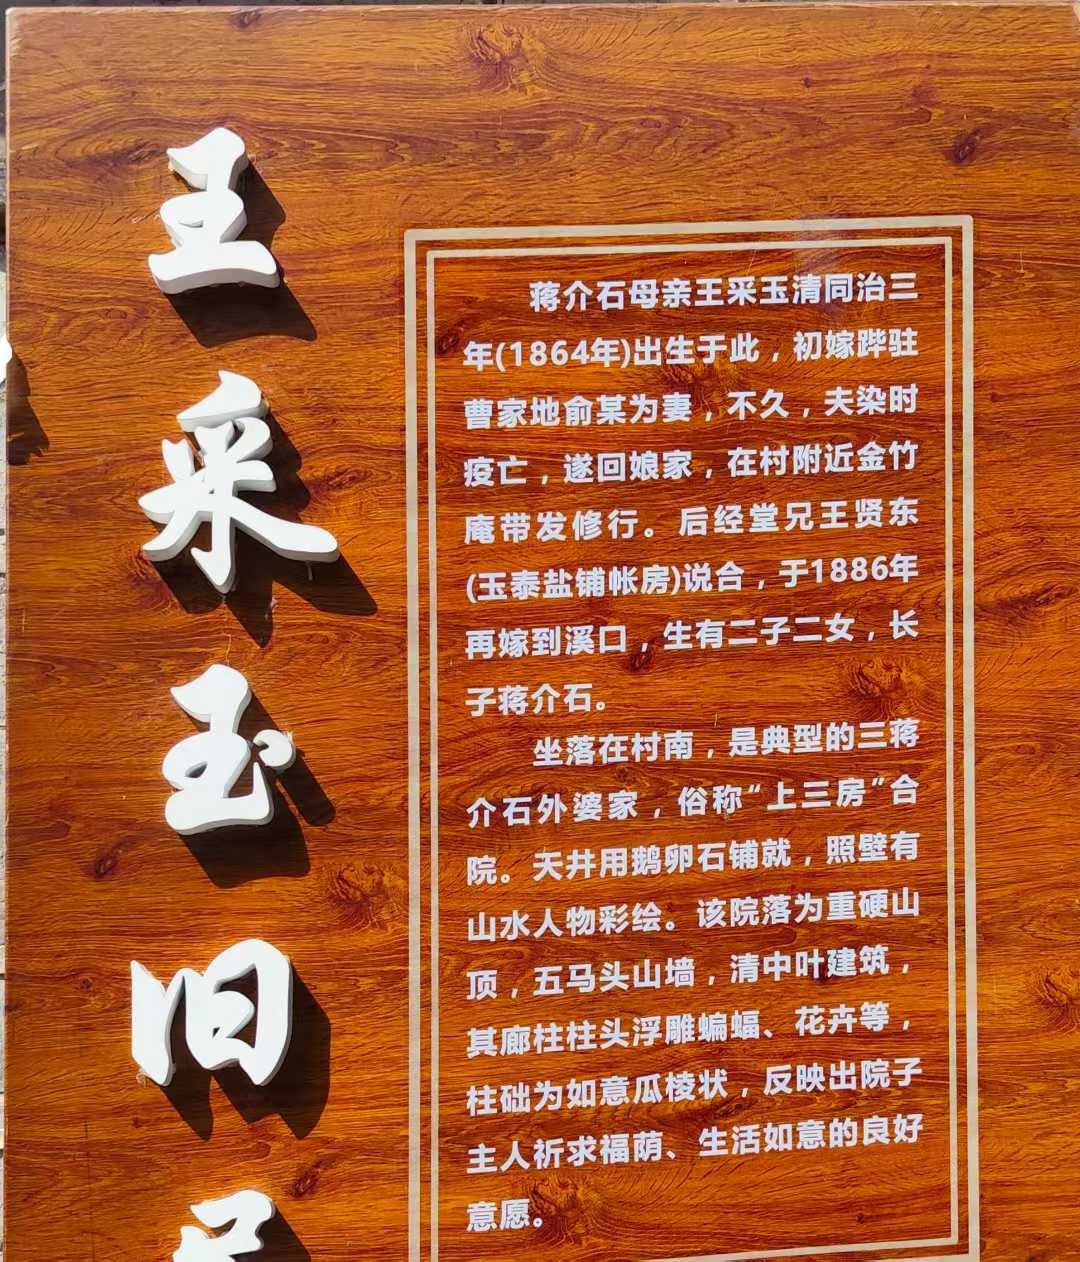 王采玉旧
蒋介石母亲王采玉清同治三
年(1864年)出生于此，初嫁跸驻
曹家地俞某为妻，不久，夫染时
疫亡，遂回娘家，在村附近金竹
庵带发修行。后经堂兄王贤东
(玉泰盐铺帐房)说合，于1886年
再嫁到溪口，生有二子二女，长
子蒋介石。
坐落在村南，是典型的三蒋
介石外婆家，俗称“上三房”合
院。天井用鹅卵石铺就，照壁有
山水人物彩绘。该院落为重硬山
顶，五马头山墙，清中叶建筑，
其廊柱柱头浮雕蝙蝠、花卉等，
柱础为如意瓜棱状，反映出院子
主人祈求福荫、生活如意的良好
意愿。